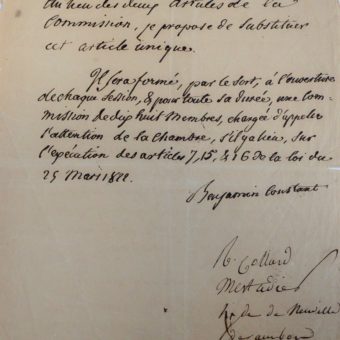 au lieu des deux articles de la
Commission, je propose de substituer
cet article unique.
Il sera formé, par le sort, à l'ouverture
de chaque session, & pour toute sa durée, une Com-
mission de dix huit Membres, chargée d'appeler
l'attention de la Chambre, s'il y a lieu, sur
l'exécution des articles 7, 15, & 16 de la loi du
25 Mars 1822.
Benjamin Constant
R. Collard
Mestadier
hyde de Neuville